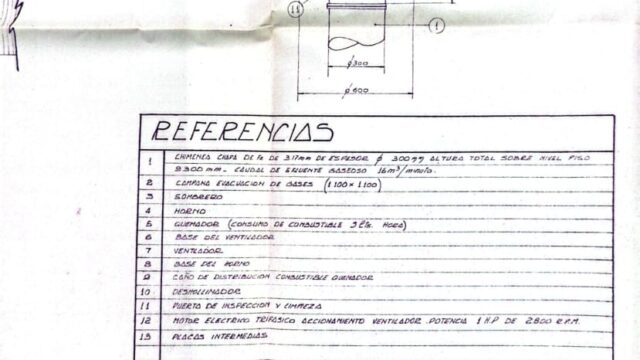 11
1
ø300
ø600
REFERENCIAS
1 CHIMENEA CHAPA DE Fe DE 3.17mm DE ESPESOR ø 300mm ALTURA TOTAL SOBRE NIVEL PISO
9300 mm. CAUDAL DE EFLUENTE GASEOSO 16m³/minuto.
2 CAMPANA EVACUACION DE GASES (1.100 x 1.100)
3 SOMBRERO
4 HORNO
5 QUEMADOR (CONSUMO DE COMBUSTIBLE 3 HORA)
6 BASE DEL VENTILADOR
7 VENTILADOR
8 BASE DEL HORNO
9 CAÑO DE DISTRIBUCION COMBUSTIBLE QUEMADOR
10 DESHOLLINADOR
11 PUERTA DE INSPECCION Y LIMPIEZA
12 MOTOR ELECTRICO TRIFASICO ACCIONAMIENTO VENTILADOR POTENCIA 1 H.P DE 2.800 R.P.M.
13 PLACAS INTERMEDIAS